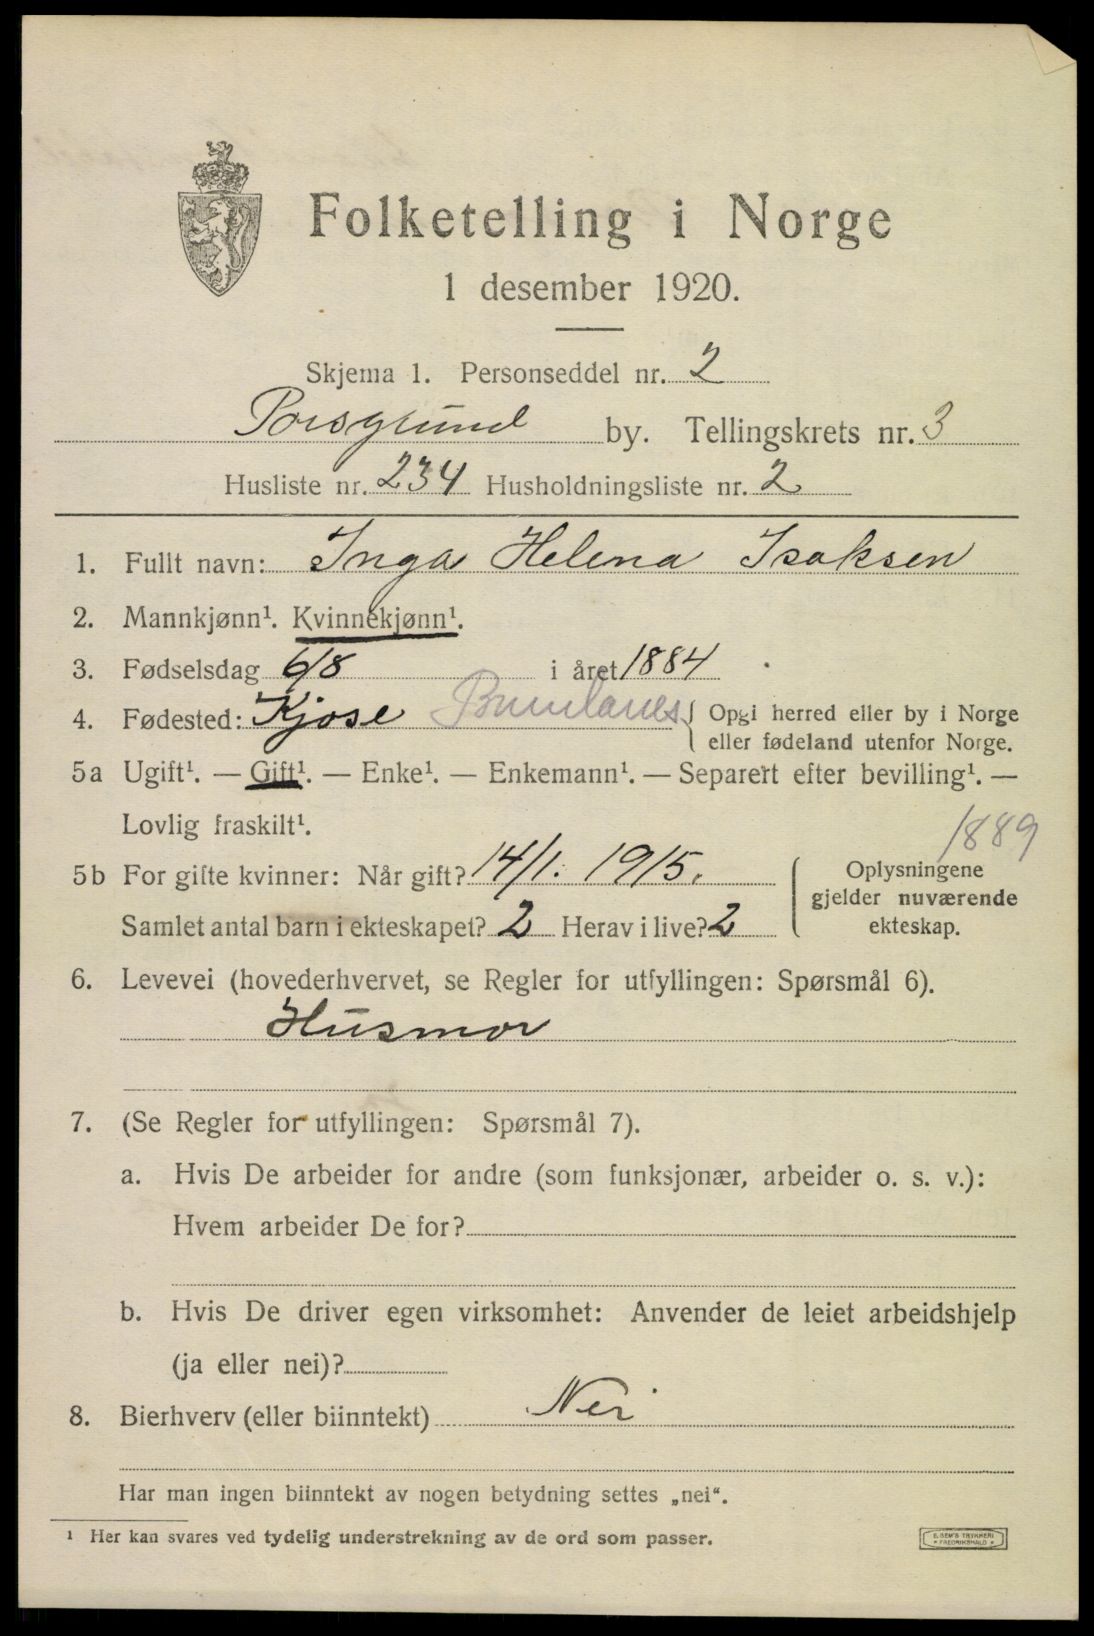 Folketelling i Norge
1 desember 1920.
Skjema 1. Personseddel nr. 2
Porsgrund by. Tellingskrets nr. 3
Husliste nr. 234 Husholdningsliste nr. 2
1. Fullt navn: Inga Helena Isaksen
2. Mannkjønn¹. Kvinnekjønn¹.
3. Fødselsdag 6/8 i året 1884
4. Fødested: Kjose Brunlanes { Opgi herred eller by i Norge
eller fødeland utenfor Norge.
5a Ugift¹. — Gift¹. — Enke¹. — Enkemann¹. — Separert efter bevilling¹. —
Lovlig fraskilt¹.
1889
5b For gifte kvinner: Når gift? 14/1. 1915. { Oplysningene
gjelder nuværende
Samlet antal barn i ekteskapet? 2 Herav i live? 2 ekteskap.
6. Levevei (hovederhvervet, se Regler for utfyllingen: Spørsmål 6).
Husmor
7. (Se Regler for utfyllingen: Spørsmål 7).
a. Hvis De arbeider for andre (som funksjonær, arbeider o. s. v.):
Hvem arbeider De for?
b. Hvis De driver egen virksomhet: Anvender de leiet arbeidshjelp
(ja eller nei)?
8. Bierhverv (eller biinntekt) Nei
Har man ingen biinntekt av nogen betydning settes „nei“.
¹ Her kan svares ved tydelig understrekning av de ord som passer.
E. SEM'S TRYKKERI
* FREDRIKSHALD *